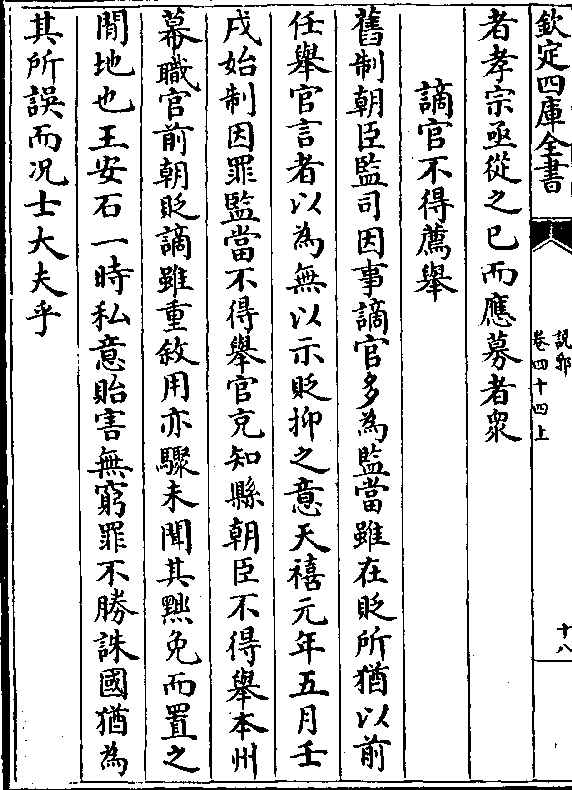 欽定四庫全書
說郛
卷四十四上
十八
者孝宗亟從之已而應募者衆
謫官不得薦舉
舊制朝臣監司因事謫官多為監當雖在貶所猶以前
任舉官言者以為無以示貶抑之意天禧元年五月壬
戌始制因罪監當不得舉官充知縣朝臣不得舉本州
幕職官前朝貶謫雖重敘用亦驟未聞其黜免而置之
閒地也王安石一時私意貽害無窮罪不勝誅國猶為
其所誤而况士大夫乎